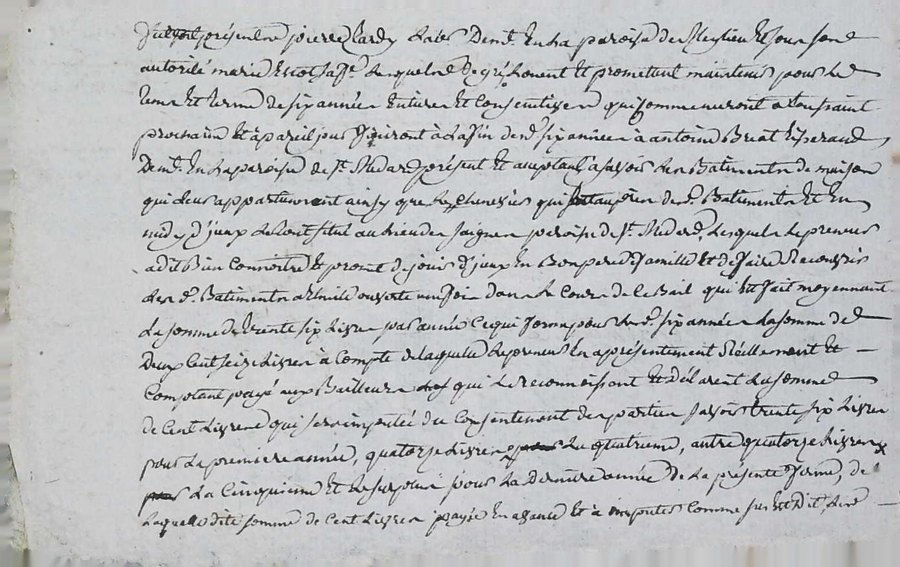 présents pierre Lardy Demt. En la paroisse de et sous son
autorité marie sa fe. Lesquels De gré donnent Et promettent maintenir pour le
tems Et terme de six année Entiere Et Consecutives qui Commenceront a Toussaint
prochain Et à pareil jour finiront à la fin desd. six années à antoine
Demt. En la paroisse de St. Medard présent Et acceptant, à savoir les Batiments de maison
qui leur appartiennent ainsy que le qui Est auprès desd. Batiments Et En
midy d'iceux le tout situé au lieu de paroisse de St. Medard, lesquels le preneur
a dit Bien Connoitre Et promet de jouir d'iceux En Bon pere de famille Et de faire Recouvrir
lesd. Batiments a tuile ouverte une fois dans le Cours de le Bail qui Est fait moyennant
La somme de trente six Livres par année Ce qui forme pour lesd. six année La somme de
Deux Cent seize Livres à Compte de laquelle le preneur En a présentement Réellement Et
Comptant payé aux Bailleurs qui le reconnoissent Et déclarent La somme
de Cent Livres qui sera imputée du Consentement des parties savoir trente six Livres
pour La premiere année, quatorze Livres La quatrieme, autre quatorze Livres
La Cinquieme Et Le surplus pour La derniere année de La présente ferme, de
Laquelle dite somme de Cent Livres payée En avance Et à imputer Comme sus Est Dit,